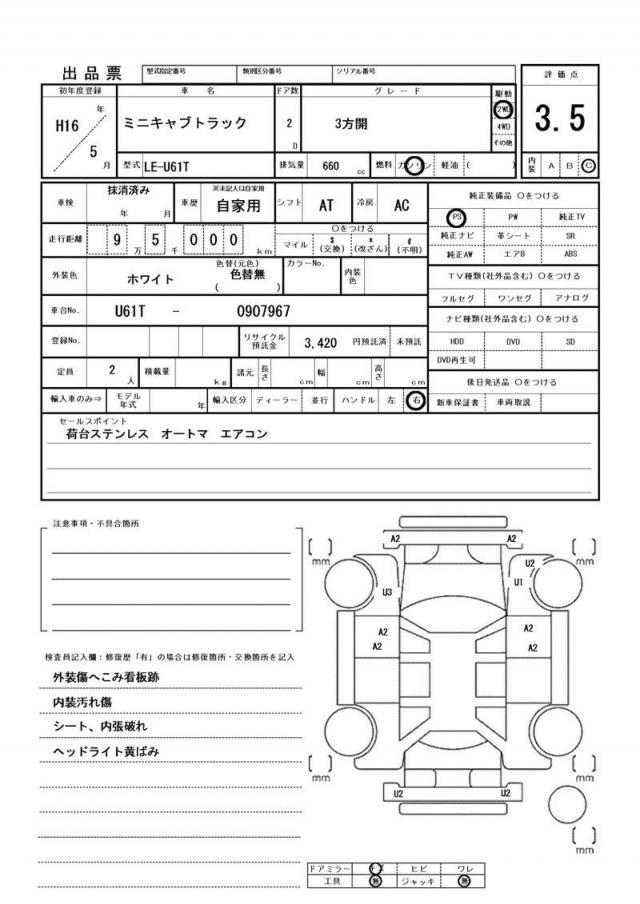 出品票
型式指定番号 類別区分番号 シリアル番号 評価点
初年度登録 車名 ドア数 グレード 駆動
H16 年 ミニキャブトラック 2 D 3方開 2WD 3.5
5 月 4WD
その他
型式 LE-U61T 排気量 660 cc 燃料 ガソリン 軽油 ( ) 内装 A B C
車検 抹消済み 年 月 車歴 ※未記入は自家用 自家用 シフト AT 冷房 AC 純正装備品 〇をつける
PS PW 純正TV
走行距離 9 万 5 千 0 0 0 km 〇をつける
マイル $ (交換) x (改ざん) # (不明) 純正ナビ 革シート SR
純正AW エアB ABS
外装色 ホワイト 色替(元色) 色替無 ( ) カラーNo. 内装色
TV種類(社外品含む) 〇をつける
フルセグ ワンセグ アナログ
車台No. U61T - 0907967
ナビ種類(社外品含む) 〇をつける
登録No. リサイクル預託金 3,420 円預託済 未預託 HDD DVD SD
DVD再生可
定員 2 人 積載量 kg 諸元 長さ cm 幅 cm 高さ cm
後日発送品 〇をつける
輸入車のみ⇒ モデル年式 年 輸入区分 ディーラー 並行 ハンドル 左 右 新車保証書 車両取説
セールスポイント
荷台ステンレス オートマ エアコン
注意事項・不具合箇所
A2 A2
mm mm
U2
U3 U1
A2 A2
A2 A2
検査員記入欄：修復歴「有」の場合は修復箇所・交換箇所を記入
外装傷へこみ看板跡
内装汚れ傷
シート、内張破れ
ヘッドライト黄ばみ
mm mm
U2 U2
mm
ドアミラー ヒビ ワレ
工具 無 ジャッキ 無